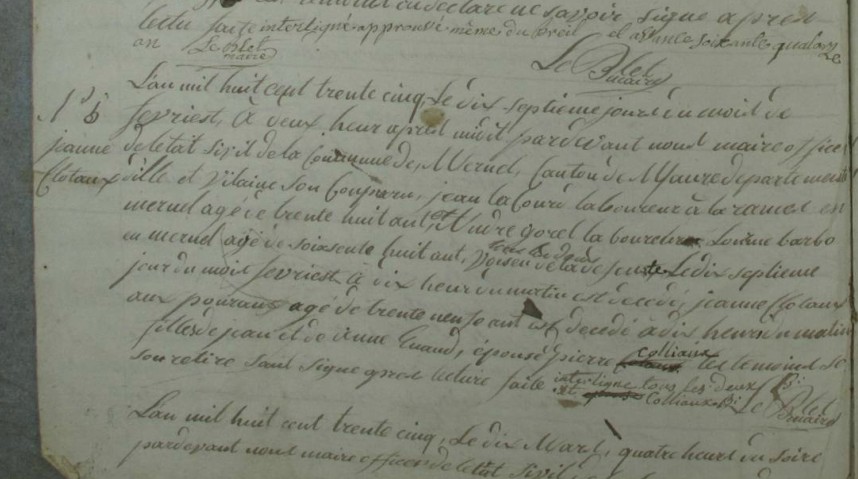 declare ne savoir signe apres
lectu faite interligné approuvé même du Breil et ajoute soixante quatorze
an Le Blet
maire
Le Blet
maire
L'an mil huit cent trente cinq, Le dix septieme jour du mois de
fevriest, à deux heur apres midit pardevant nous maire officie
de letat sivil de la Commune de Mernel, Canton de Maure departement
jeanne
Clotaux
dille et vilaine son Comparu, jean la Cour laboureur à la ramee en
mernel agé de trente huit ant, et andre gorel la boureur
en mernel agé de soixsente huit ant, tous les deux
voisen de la defente Le dix septieme
jour du mois fevriest à dix heur du matin est decedé, jeanne Clotaux
agé de trente neuf ant est decedé à dix heur du matin
filles de jean et de anne Guand, épouse pierre colliaux les temoins se
son retire sant signe apres lecture faite interligne tous les deux
Colliaux Le Blet
maire
L'an mil huit cent trente cinq, Le dix Mars, quatre heur du soire
pardevant nous maire officier de letat sivil